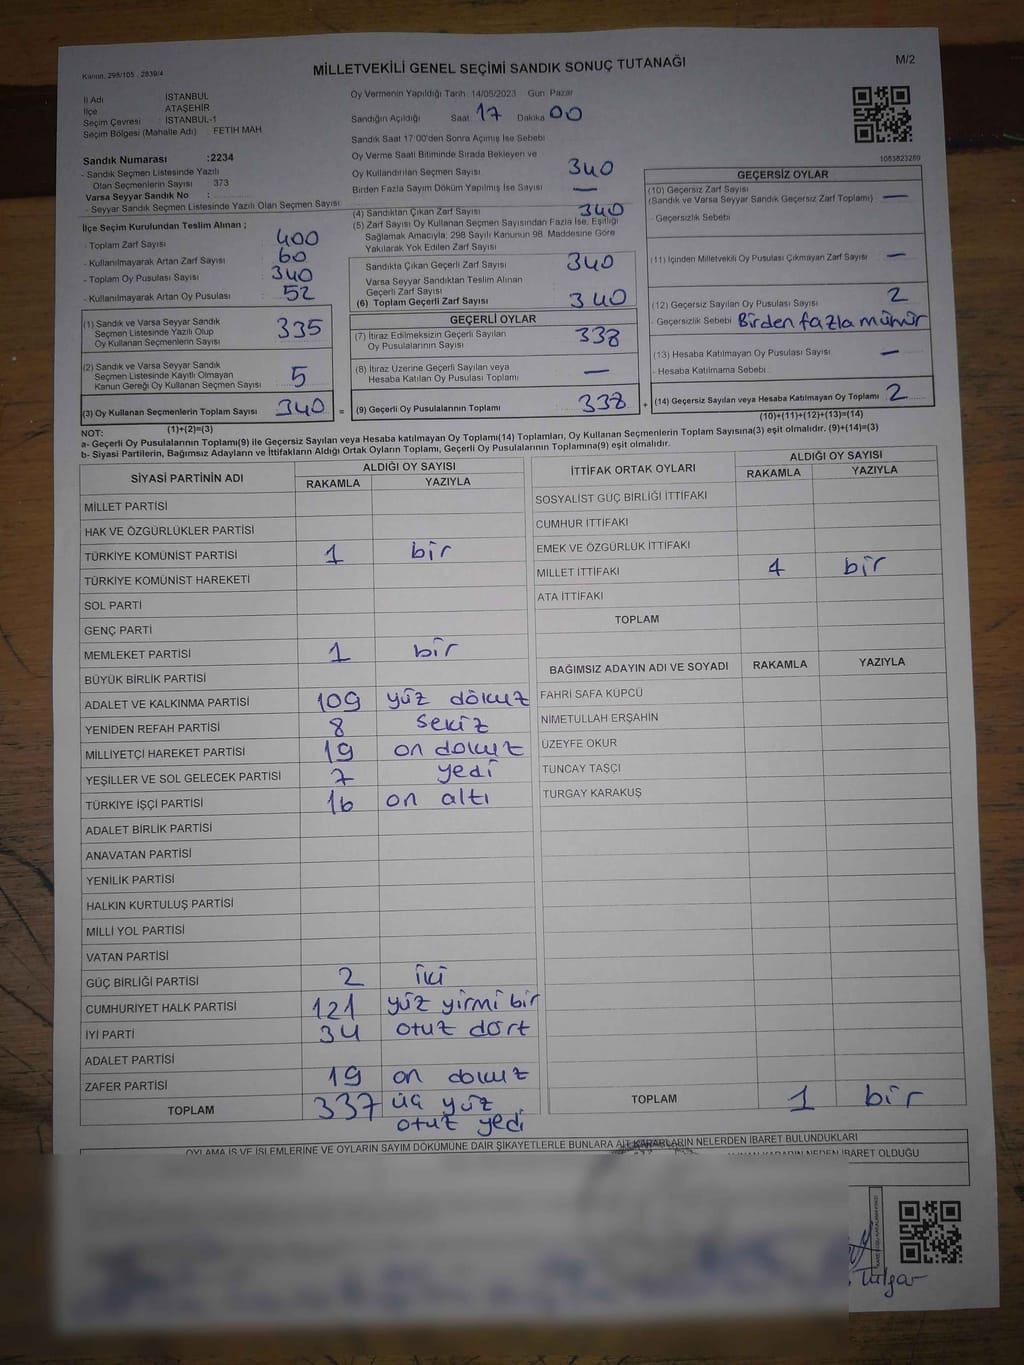 Kanun, 298/105 , 2839/4
MİLLETVEKİLİ GENEL SEÇİMİ SANDIK SONUÇ TUTANAĞI
M/2
İl Adı : İSTANBUL
İlçe : ATAŞEHİR
Seçim Çevresi : İSTANBUL-1
Seçim Bölgesi (Mahalle Adı) : FETİH MAH
Sandık Numarası :2234
- Sandık Seçmen Listesinde Yazılı
Olan Seçmenlerin Sayısı : 373
Varsa Seyyar Sandık No :
- Seyyar Sandık Seçmen Listesinde Yazılı Olan Seçmen Sayısı :
Oy Vermenin Yapıldığı Tarih :14/05/2023 Gün: Pazar
Sandığın Açıldığı Saat: 17 Dakika: 00
Sandık Saat 17:00'den Sonra Açımış İse Sebebi :
Oy Verme Saati Bitiminde Sırada Bekleyen ve
Oy Kullandırılan Seçmen Sayısı : 340
Birden Fazla Sayım Döküm Yapılmış İse Sayısı : —
1083823269
İlçe Seçim Kurulundan Teslim Alınan ;
- Toplam Zarf Sayısı : 400
- Kullanılmayarak Artan Zarf Sayısı : 60
- Toplam Oy Pusulası Sayısı : 340
- Kullanılmayarak Artan Oy Pusulası : 52
(1) Sandık ve Varsa Seyyar Sandık
Seçmen Listesinde Yazılı Olup
Oy Kullanan Seçmenlerin Sayısı : 335
(2) Sandık ve Varsa Seyyar Sandık
Seçmen Listesinde Kayıtlı Olmayan
Kanun Gereği Oy Kullanan Seçmen Sayısı : 5
(3) Oy Kullanan Seçmenlerin Toplam Sayısı : 340
(1)+(2)=(3)
(4) Sandıktan Çıkan Zarf Sayısı : 340
(5) Zarf Sayısı Oy Kullanan Seçmen Sayısından Fazla İse, Eşitliği
Sağlamak Amacıyla; 298 Sayılı Kanunun 98. Maddesine Göre
Yakılarak Yok Edilen Zarf Sayısı :
Sandıkta Çıkan Geçerli Zarf Sayısı : 340
Varsa Seyyar Sandıktan Teslim Alınan
Geçerli Zarf Sayısı :
(6) Toplam Geçerli Zarf Sayısı : 340
GEÇERLİ OYLAR
(7) İtiraz Edilmeksizin Geçerli Sayılan
Oy Pusulalarının Sayısı : 338
(8) İtiraz Üzerine Geçerli Sayılan veya
Hesaba Katılan Oy Pusulası Toplamı : —
= (9) Geçerli Oy Pusulalarının Toplamı : 338
GEÇERSİZ OYLAR
(10) Geçersiz Zarf Sayısı
(Sandık ve Varsa Seyyar Sandık Geçersiz Zarf Toplamı) : —
- Geçersizlik Sebebi :
(11) İçinden Milletvekili Oy Pusulası Çıkmayan Zarf Sayısı : —
(12) Geçersiz Sayılan Oy Pusulası Sayısı : 2
- Geçersizlik Sebebi : Birden fazla mühür
(13) Hesaba Katılmayan Oy Pusulası Sayısı : —
- Hesaba Katılmama Sebebi :
+ (14) Geçersiz Sayılan veya Hesaba Katılmayan Oy Toplamı : 2
(10)+(11)+(12)+(13)=(14)
NOT:
a- Geçerli Oy Pusulalarının Toplamı(9) ile Geçersiz Sayılan veya Hesaba katılmayan Oy Toplamı(14) Toplamları, Oy Kullanan Seçmenlerin Toplam Sayısına(3) eşit olmalıdır. (9)+(14)=(3)
b- Siyasi Partilerin, Bağımsız Adayların ve İttifakların Aldığı Ortak Oyların Toplamı, Geçerli Oy Pusulalarının Toplamına(9) eşit olmalıdır.
SİYASİ PARTİNİN ADI ALDIĞI OY SAYISI
RAKAMLA YAZIYLA
MİLLET PARTİSİ
HAK VE ÖZGÜRLÜKLER PARTİSİ
TÜRKİYE KOMÜNİST PARTİSİ 1 bir
TÜRKİYE KOMÜNİST HAREKETİ
SOL PARTİ
GENÇ PARTİ
MEMLEKET PARTİSİ 1 bir
BÜYÜK BİRLİK PARTİSİ
ADALET VE KALKINMA PARTİSİ 109 yüz dokuz
YENİDEN REFAH PARTİSİ 8 sekiz
MİLLİYETÇİ HAREKET PARTİSİ 19 on dokuz
YEŞİLLER VE SOL GELECEK PARTİSİ 7 yedi
TÜRKİYE İŞÇİ PARTİSİ 16 on altı
ADALET BİRLİK PARTİSİ
ANAVATAN PARTİSİ
YENİLİK PARTİSİ
HALKIN KURTULUŞ PARTİSİ
MİLLİ YOL PARTİSİ
VATAN PARTİSİ
GÜÇ BİRLİĞİ PARTİSİ 2 iki
CUMHURİYET HALK PARTİSİ 121 yüz yirmi bir
İYİ PARTİ 34 otuz dört
ADALET PARTİSİ
ZAFER PARTİSİ 19 on dokuz
TOPLAM 337 üç yüz
otuz yedi
İTTİFAK ORTAK OYLARI ALDIĞI OY SAYISI
RAKAMLA YAZIYLA
SOSYALİST GÜÇ BİRLİĞİ İTTİFAKI
CUMHUR İTTİFAKI
EMEK VE ÖZGÜRLÜK İTTİFAKI
MİLLET İTTİFAKI 1 bir
ATA İTTİFAKI
TOPLAM
BAĞIMSIZ ADAYIN ADI VE SOYADI RAKAMLA YAZIYLA
FAHRİ SAFA KÜPCÜ
NİMETULLAH ERŞAHİN
ÜZEYFE OKUR
TUNCAY TAŞÇI
TURGAY KARAKUŞ
TOPLAM 1 bir
OYLAMA İŞ VE İŞLEMLERİNE VE OYLARIN SAYIM DÖKÜMÜNE DAİR ŞİKAYETLERLE BUNLARA AİT KARARLARIN NELERDEN İBARET BULUNDUKLARI
KARARIN NEDEN İBARET OLDUĞU